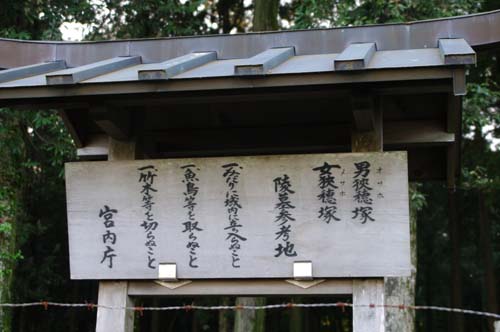 男狹穂塚
オサホ
女狹穂塚
メサホ
陵墓参考地
一、みだりに域内に立入らぬこと
一、魚鳥等を取らぬこと
一、竹木等を切らぬこと
宮内庁